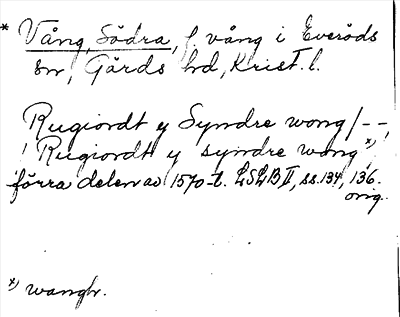 * Vång, Södra, f. vång i Everöds
sn, Gärds hd, Krist. l.
Rugiordt y Syndre wong / - -,
/ Rugiordt y syndre wang *)
förra delen av 1570-t. LSLB II, ss. 134, 136.
orig.
*) wangh.